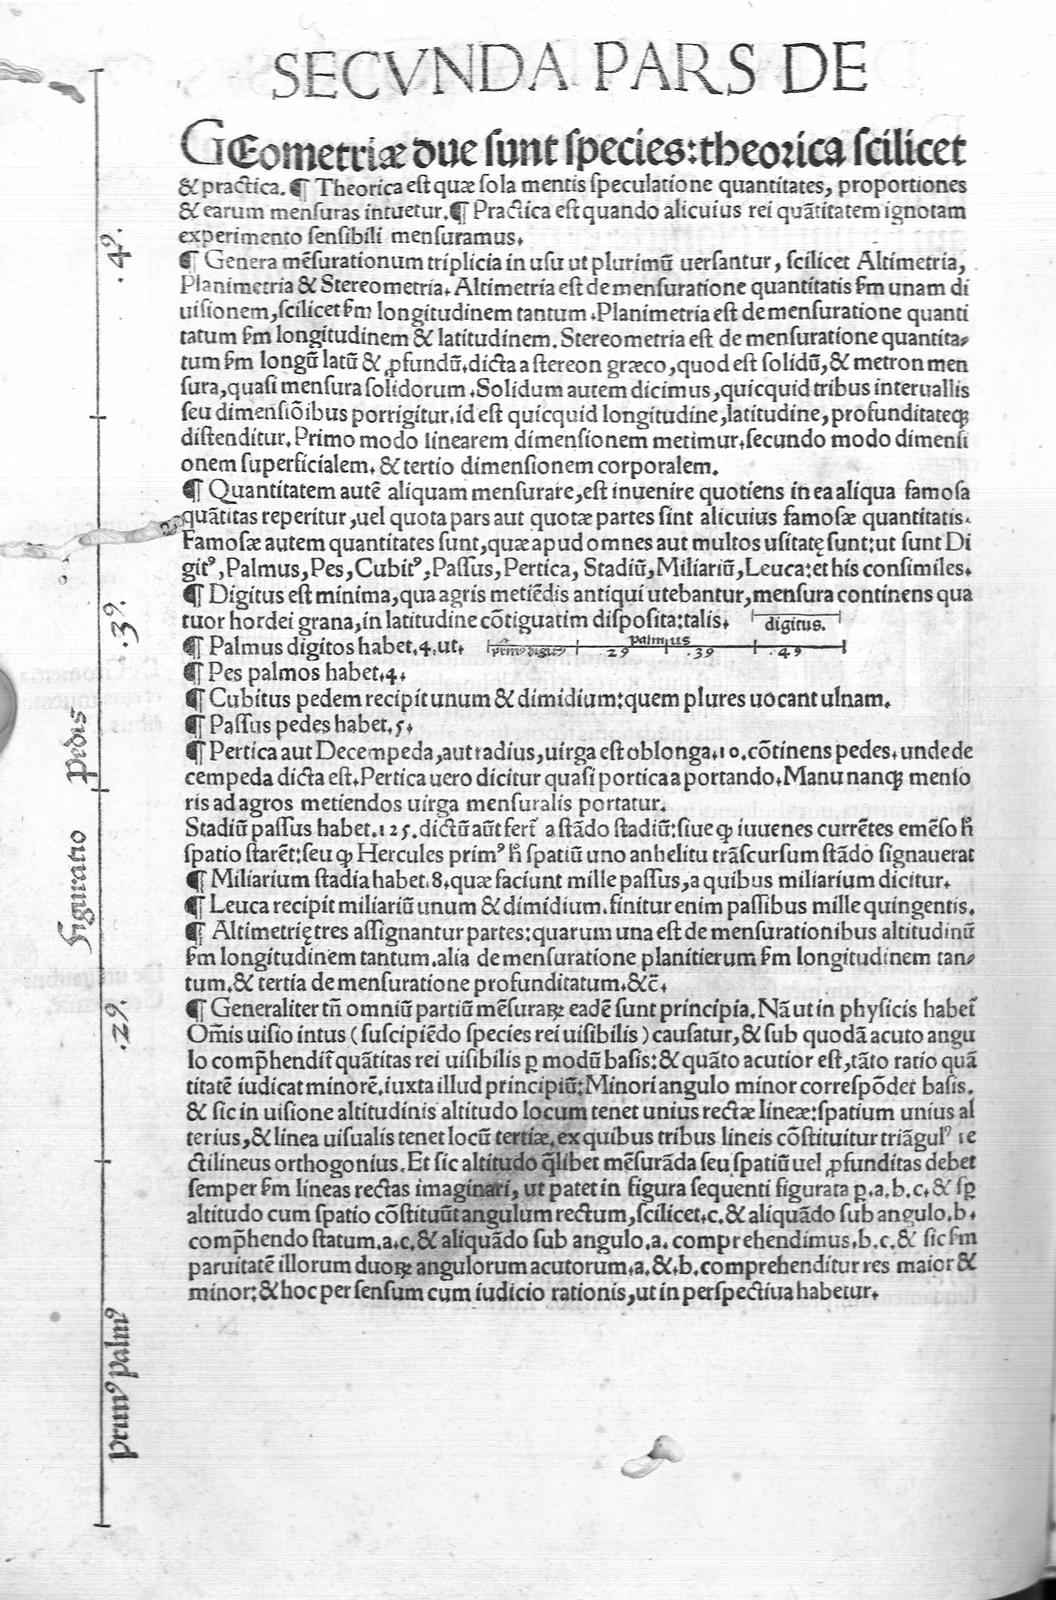 SECVNDA PARS DE
GEometriæ due sunt species: theorica scilicet
& practica. ¶ Theorica est quæ sola mentis speculatione quantitates, proportiones
& earum mensuras intuetur. ¶ Practica est quando alicuius rei quãtitatem ignotam
experimento sensibili mensuramus.
¶ Genera mẽsurationum triplicia in usu ut plurimũ uersantur, scilicet Altimetria,
Planimetria & Stereometria. Altimetria est de mensuratione quantitatis ſm unam di
uisionem, scilicet ſm longitudinem tantum. Planimetria est de mensuratione quanti
tatum ſm longitudinem & latitudinem. Stereometria est de mensuratione quantita⸗
tum ſm longũ latũ & ꝓfundũ, dicta a stereon græco, quod est solidũ, & metron men
sura, quasi mensura solidorum. Solidum autem dicimus, quicquid tribus interuallis
seu dimensiõibus porrigitur, id est quicquid longitudine, latitudine, profunditateqꝫ
distenditur. Primo modo linearem dimensionem metimur, secundo modo dimensi
onem superficialem, & tertio dimensionem corporalem.
¶ Quantitatem autẽ aliquam mensurare, est inuenire quotiens in ea aliqua famosa
quãtitas reperitur, uel quota pars aut quotæ partes sint alicuius famosæ quantitatis.
Famosæ autem quantitates sunt, quæ apud omnes aut multos usitatę sunt: ut sunt Di
gitꝰ, Palmus, Pes, Cubitꝰ, Passus, Pertica, Stadiũ, Miliariũ, Leuca: et his consimiles.
¶ Digitus est minima, qua agris metiẽdis antiqui utebantur, mensura continens qua
tuor hordei grana, in latitudine cõtiguatim disposita: talis. digitus.
¶ Palmus digitos habet.4. ut. primꝰ digitꝰ 2ꝰ palmus .3ꝰ .4ꝰ
¶ Pes palmos habet.4.
¶ Cubitus pedem recipit unum & dimidium: quem plures uocant ulnam.
¶ Passus pedes habet.5.
¶ Pertica aut Decempeda, aut radius, uirga est oblonga.10. cõtinens pedes. unde de
cempeda dicta est. Pertica uero dicitur quasi portica a portando. Manu nanqꝫ menso
ris ad agros metiendos uirga mensuralis portatur.
Stadiũ passus habet.125. dictũ aũt fert̃ a stãdo stadiũ: siue ꝙ iuuenes currẽtes emẽso h̃
spatio starẽt: seu ꝙ Hercules primꝰ h̃ spatiũ uno anhelitu trãscursum stãdo signauerat
¶ Miliarium stadia habet.8. quæ faciunt mille passus, a quibus miliarium dicitur.
¶ Leuca recipit miliariũ unum & dimidium. finitur enim passibus mille quingentis.
¶ Altimetrię tres assignantur partes: quarum una est de mensurationibus altitudinũ
ſm longitudinem tantum. alia de mensuratione planitierum ſm longitudinem tan⸗
tum. & tertia de mensuratione profunditatum. &c̃.
¶ Generaliter tñ omniũ partiũ mẽsuraꝝ eadẽ sunt principia. Nã ut in physicis habet̃
Om̃is uisio intus (suscipiẽdo species rei uisibilis) causatur, & sub quodã acuto angu
lo comp̃hendit̃ quãtitas rei uisibilis ꝑ modũ basis: & quãto acutior est, tãto ratio quã
titatẽ iudicat minorẽ, iuxta illud principiũ: Minori angulo minor correspõdet basis.
& sic in uisione altitudinis altitudo locum tenet unius rectæ lineæ: spatium unius al
terius, & linea uisualis tenet locũ tertiæ, ex quibus tribus lineis cõstituitur triãgulꝰ re
ctilineus orthogonius. Et sic altitudo q̃libet mẽsurãda seu spatiũ uel ꝓfunditas debet
semper ſm lineas rectas imaginari, ut patet in figura sequenti figurata ꝑ.a.b.c. & sꝑ
altitudo cum spatio cõstituũt angulum rectum, scilicet.c. & aliquãdo sub angulo.b.
comp̃hendo statum.a.c. & aliquãdo sub angulo.a. comprehendimus.b.c. & sic ſm
paruitatẽ illorum duoꝝ angulorum acutorum.a. &.b. comprehenditur res maior &
minor: & hoc per sensum cum iudicio rationis, ut in perspectiua habetur.
figuratio pedis
primꝰ palmꝰ
.2ꝰ.
.3ꝰ.
.4ꝰ.